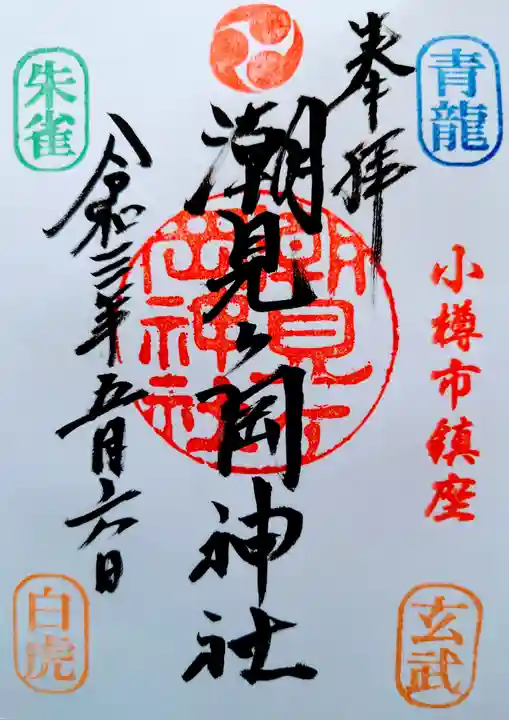 奉拝
青龍
小樽市鎮座
玄武
潮見ヶ岡神社
潮見ヶ
岡神社
朱雀
令和三年五月六日
白虎